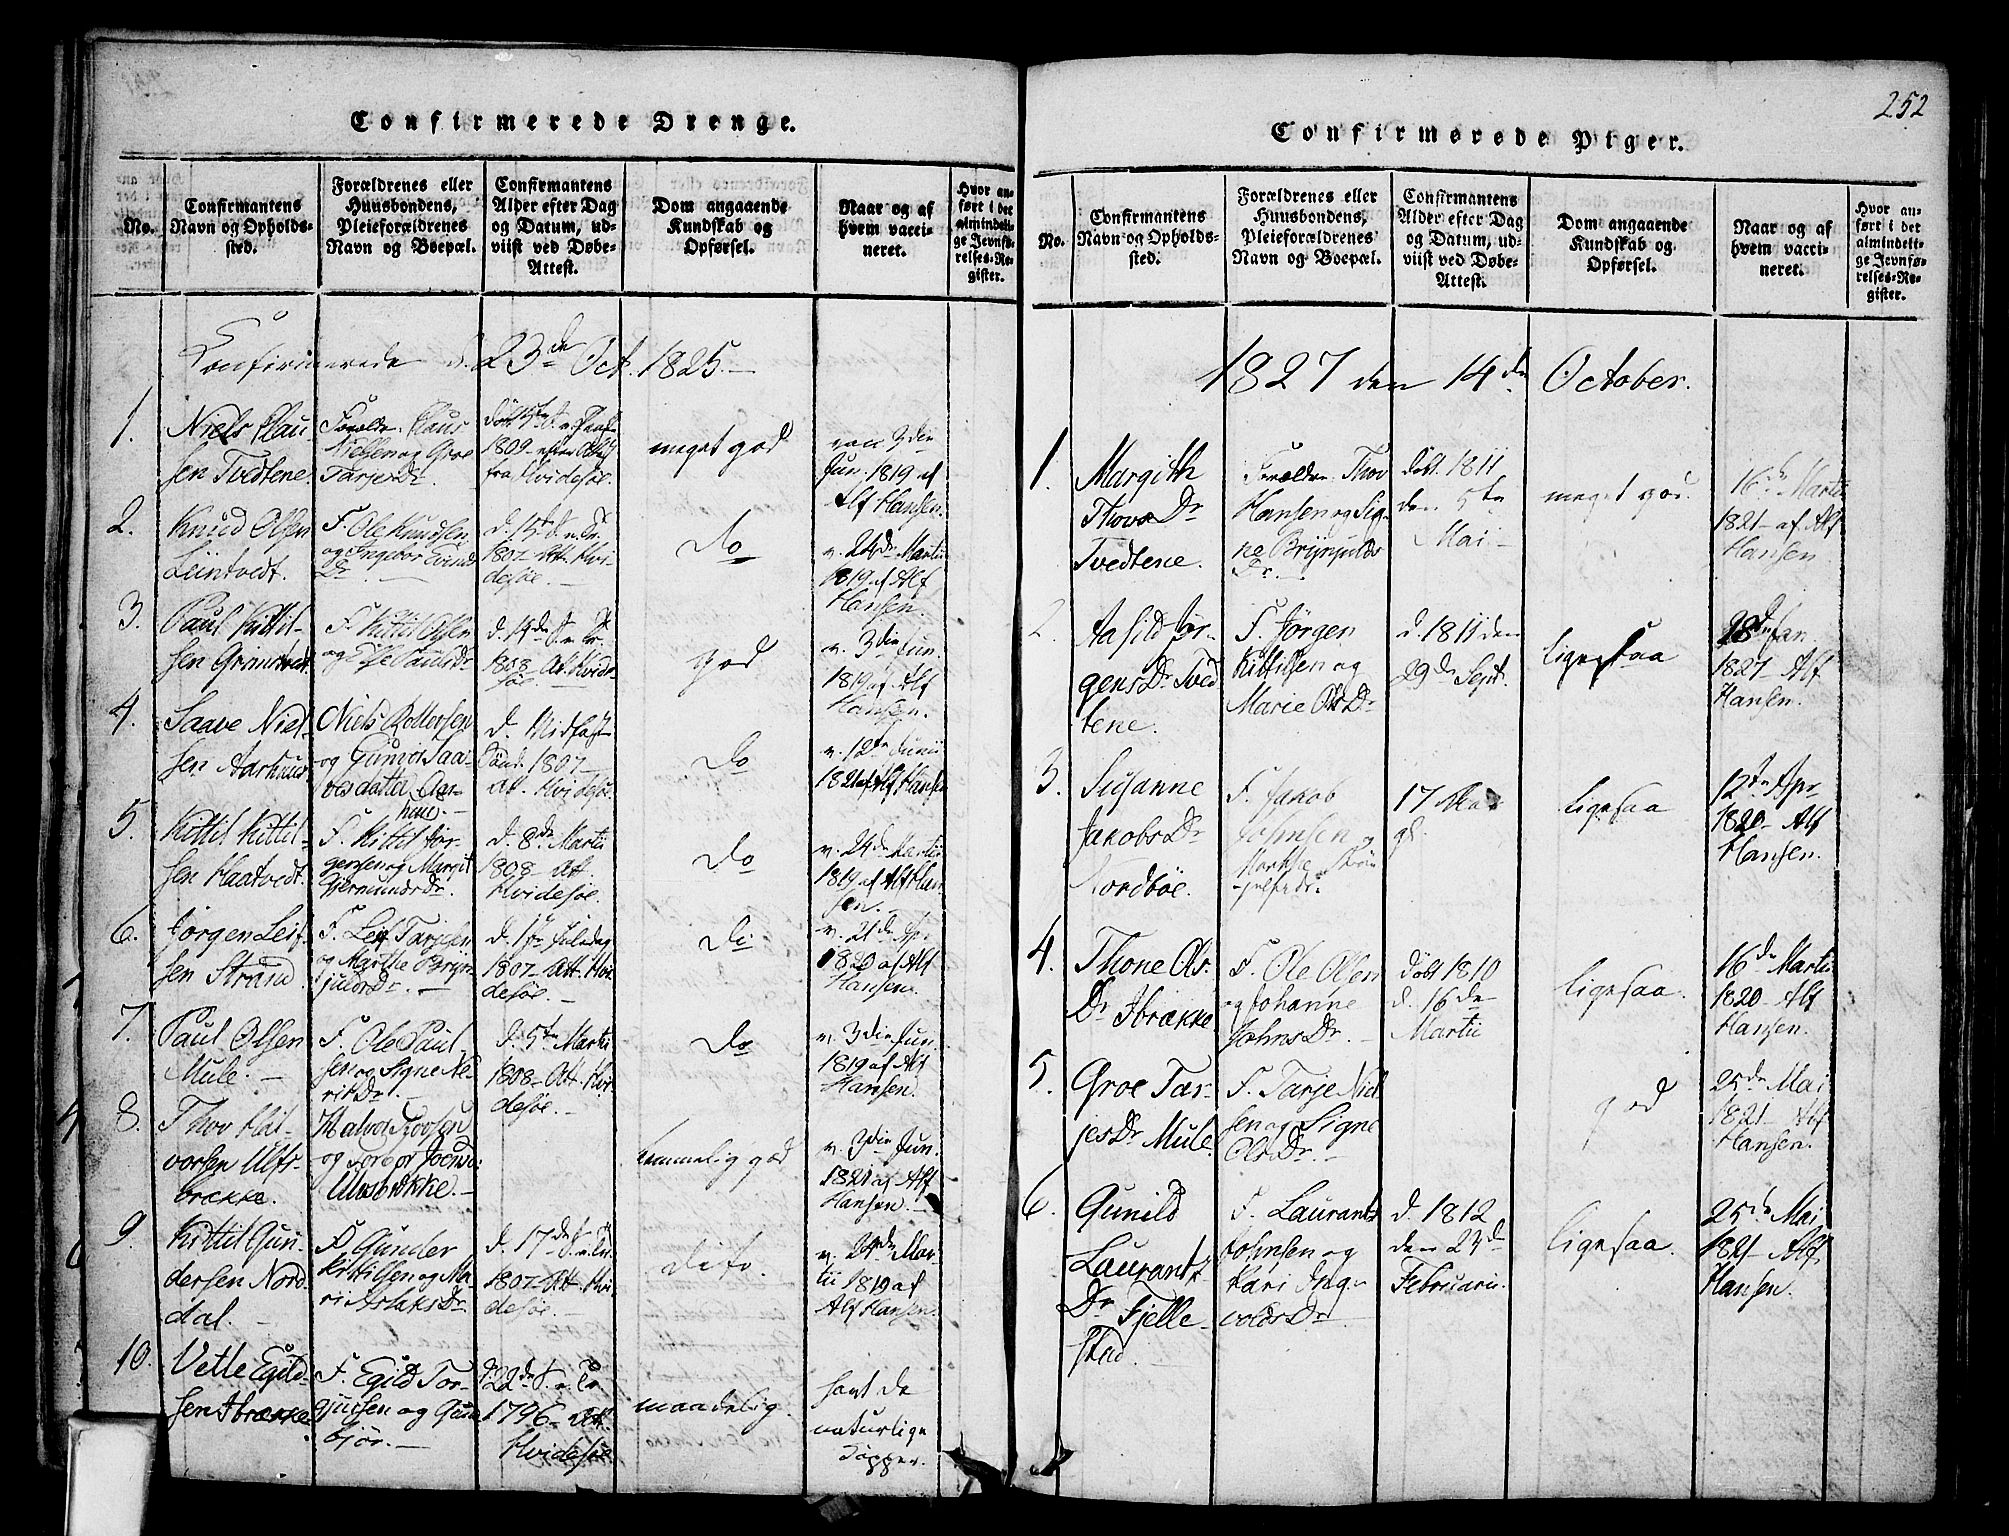 252
Confirmerede Drenge.
No.
Confirmantens
Navn og Opholds-
sted.
Forældrenes eller
Huusbondens,
Pleieforældrenes
Navn og Boepæl.
Confirmantens
Alder efter Dag
og Datum, ud-
viist ved Døbe-
Attest.
Dom angaaende
Kundskab og
Opførsel.
Naar og af
hvem vacci-
neret.
Hvor an-
ført i det
almindeli-
ge Jevnfø-
relses-Re-
gister.
Confirmerede d. 23de Oct. 1825.
1.
Niels Clau-
sen Tvedtene.
Foræld. Claus
Nielsen og Groe
Tarje Dr.
1809 - efter Att.
fra Hvidesøe.
meget god
vac. 3die
Jun. 1819 af
Alf Hansen.
2.
Knud Olsen
Leintvedt.
F. Ole Knudsen
og Ingebor Eivinds
Dr.
1807 - Att. Hvi-
desøe.
do
v. 24de Martii
1819 af Alf
Hansen.
3.
Paul Kittil-
sen
F. Kittil Olsen
og Pauls Dr
d. 14de S. e. Tr.
1808 - At. Hvide-
søe.
god
v. 3die Jun.
1819 af Alf
Hansen.
4.
Saave Niel-
sen Aarhuus
Niels
og Gunvor Saa-
vesdatter Aar-
huus.
d. Midfast
Sønd. 1807 -
att. Hvidesøe.
do
v. 12te Junii
1821 af Alf Hansen
5.
Kittil Kittil-
sen Haatvedt.
F. Kittil Jør-
gensen og Margit
Gjermunds Dr.
d. 8de Martii
1808 - Att.
Hvidesøe.
do
v. 24de Martii
1819 af Alf Han-
sen.
6.
Jørgen Leif-
sen Strand.
F. Leif Tarjesen
og Marthe Bryn-
julds Dr.
d. 1ste Juledag
1807 - Att. Hvi-
desøe.
do
v. 21de Apr
1820 af Alf
Hansen.
7.
Paul Olsen
Mule.
F. Ole Paul-
sen og Signe Ne-
rid Dr.
d. 5te Martii
1808 - Att. Hvi-
desøe.
do
v. 3die Jun.
1819 af Alf
Hansen.
8.
Thov Hal-
vorsen Ulfs-
brække.
Halvor Tovsen
og Torbor
Ulvsbrække.
temmelig god
v. 3die Jun.
1821 af Alf
Hansen.
9.
Kittil Gun-
dersen Nord-
dal.
F. Gunder
Kittilsen og Ma-
ri Aslaks Dr
d. 17de S. e. Tr.
1807 - Att. Hvi-
desøe.
dito.
v. 24de Mar-
tii 1819 af
Alf Hansen.
10.
Vetle Egild-
sen Ibrække.
F. Egild Tor-
gjusen og Gun-
bjør.
d. 22de S. e. Tr
1796 - Att.
Hvidesøe
maadelig.
havt de
naturlige
Kopper.
Confirmerede Piger.
No.
Confirmantens
Navn og Opholds-
sted.
Forældrenes eller
Huusbondens,
Pleieforældrenes
Navn og Boepæl.
Confirmantens
Alder efter Dag
og Datum, ud-
viist ved Døbe-
Attest.
Dom angaaende
Kundskab og
Opførsel.
Naar og af
hvem vacci-
neret.
Hvor an-
ført i det
almindeli-
ge Jevnfø-
relses-Re-
gister.
1827 den 14de October.
1.
Margith
Thovs Dr
Tvedtene.
Forældre Thov
Hansen og Sig-
ne Brynjulds
Dr.
døbt 1811
den 5te
Mai -
meget god.
16de Martii
1821 - af Alf
Hansen
2.
Aasild Jør-
gens Dr Tved
tene.
F. Jørgen
Kittilsen og
Marie Ols Dr
d. 1811 den
29de Sept.
ligesaa
28de Jan.
1827 - Alf
Hansen.
3.
Susanne
Jakobs Dr
Nordbøe.
F. Jakob
Johnsen og
17 Aar
gl.
ligesaa
12te Apr
1820 - Alf
Hansen.
4.
Thone Ols
Dr Ibrække
F. Ole Olsen
og Johanne
Johns Dr.
Døbt 1810
d. 16de
Martii
ligesaa.
16de Martii
1820 - Alf
Hansen.
5.
Groe Tar-
jes Dr Mule.
F. Tarje Niel-
sen og Signe
Ols Dr.
god
25de Mai
1821 - Alf
Hansen.
6.
Gunild
Laurants
Dr Fjelle-
stad.
F. Laurants
Johnsen og
Kari Ing-
volds Dr
d. 1812
den 23de
Februarii.
ligesaa.
25de Mai
1821 - Alf
Hansen.